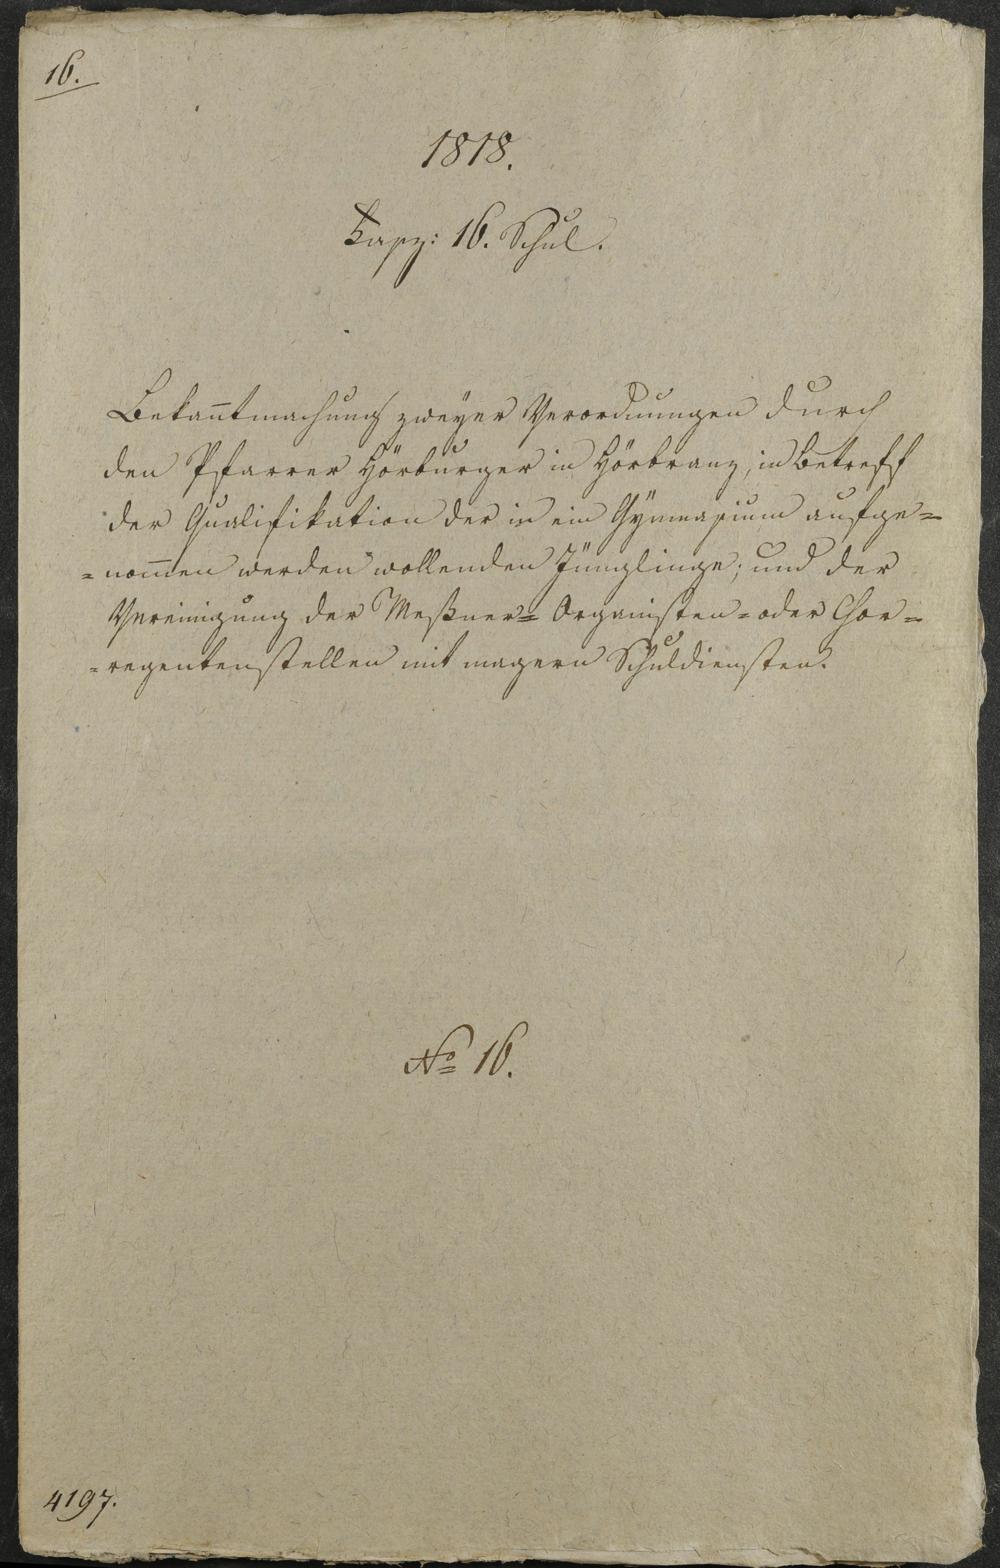 16.
1818.
Fasz: 16. Schul.
Bekan̅tmachung zweyer Verordnungen durch
den Pfarrer Hörburger in Hörbranz, in Betreff
der Qualifikation der in ein Gÿmnasium aufge=
=nom̅en werden wollenden Jünglinge; und der
Vereinigung der Meßner= Organisten= oder Chor=
=regentenstellen mit magern Schuldiensten.
No 16.
4197.